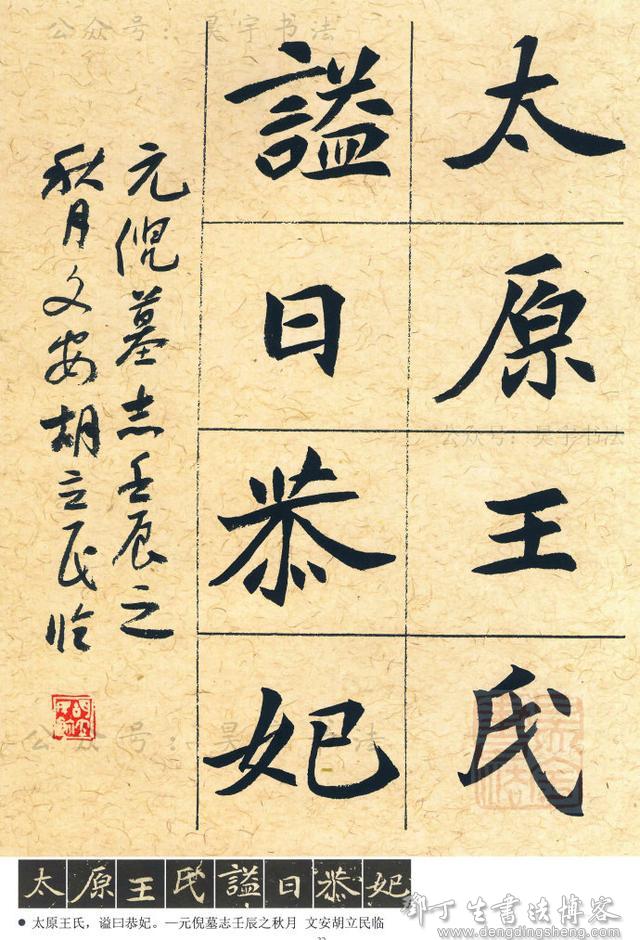 公众号：昊宇书法
太原王氏
謚曰恭妃
元倪墓志壬辰之
秋月文安胡立民临
公众号：昊宇书法
公众号：昊宇书法
太原王氏謚曰恭妃
●太原王氏，谥曰恭妃。—元倪墓志壬辰之秋月 文安胡立民临
邓丁生书法博客
www.dengdingsheng.com